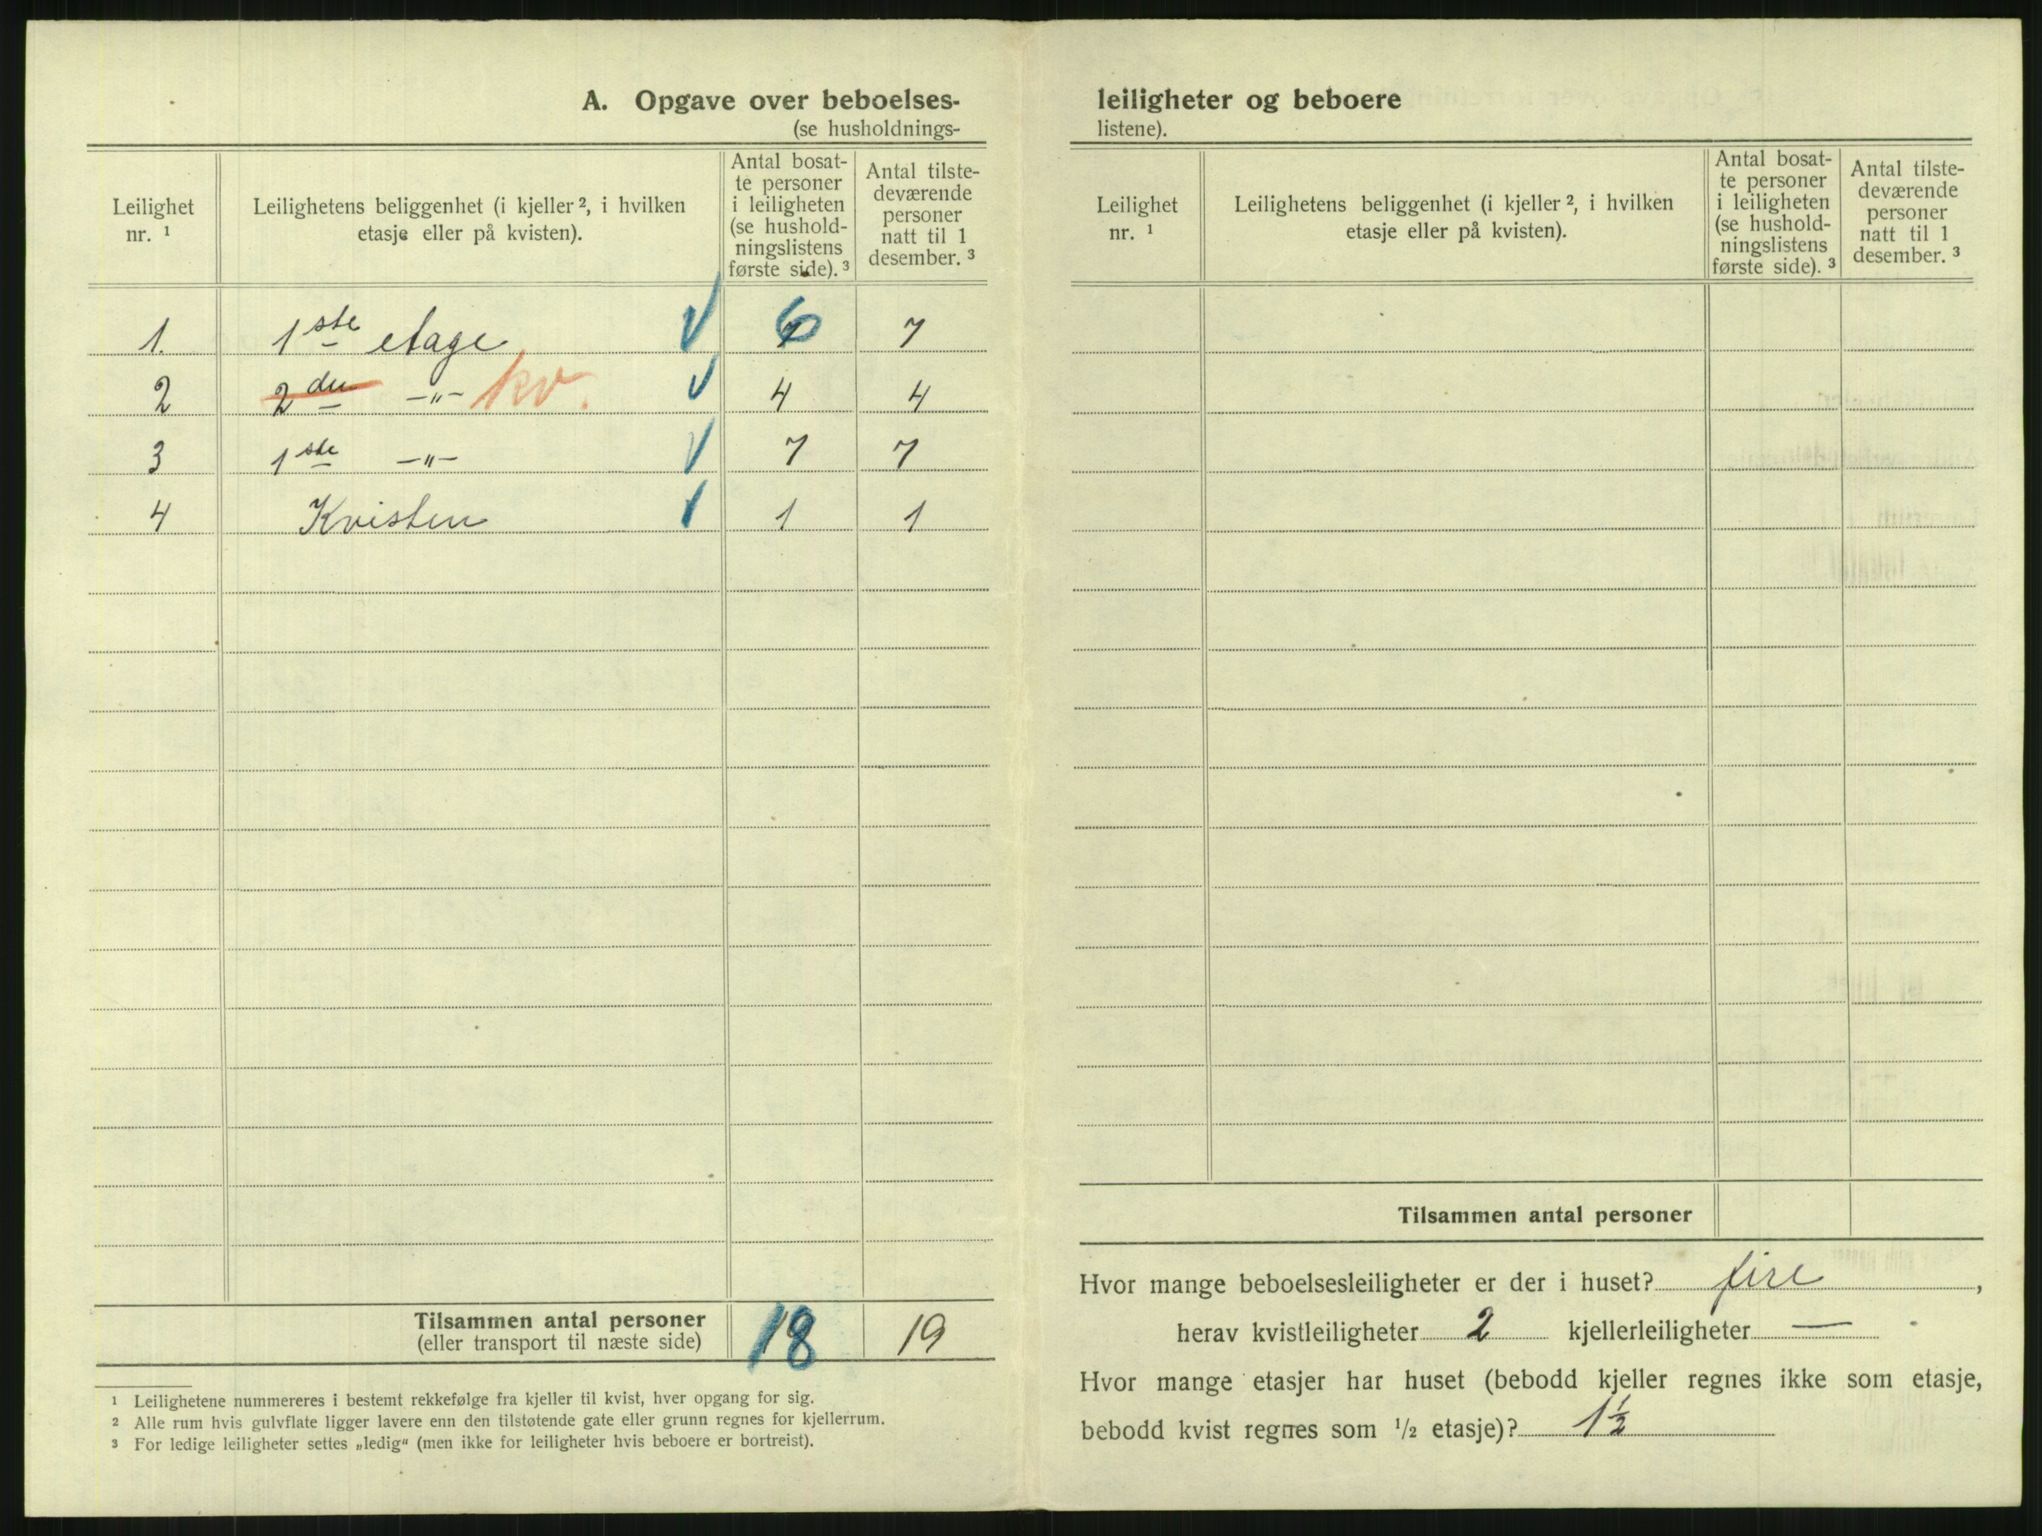 A. Opgave over beboelses-
(se husholdnings-
Leilighet nr. ¹
Leilighetens beliggenhet (i kjeller ², i hvilken etasje eller på kvisten).
Antal bosat-
te personer
i leiligheten
(se hushold-
ningslistens
første side). ³
Antal tilste-
deværende
personer
natt til 1
desember. ³
1. 1ste etage V 6 7
2 2den —„— kv. V 4 4
3 1ste —„— V 7 7
4 Kvisten 1 1
Tilsammen antal personer 18 19
(eller transport til næste side)
¹ Leilighetene nummereres i bestemt rekkefølge fra kjeller til kvist, hver opgang for sig.
² Alle rum hvis gulvflate ligger lavere enn den tilstøtende gate eller grunn regnes for kjellerrum.
³ For ledige leiligheter settes „ledig“ (men ikke for leiligheter hvis beboere er bortreist).
leiligheter og beboere
listene).
Leilighet nr. ¹
Leilighetens beliggenhet (i kjeller ², i hvilken etasje eller på kvisten).
Antal bosat-
te personer
i leiligheten
(se hushold-
ningslistens
første side). ³
Antal tilste-
deværende
personer
natt til 1
desember. ³
Tilsammen antal personer
Hvor mange beboelsesleiligheter er der i huset? fire,
herav kvistleiligheter 2 kjellerleiligheter —
Hvor mange etasjer har huset (bebodd kjeller regnes ikke som etasje,
bebodd kvist regnes som ½ etasje)? 1½